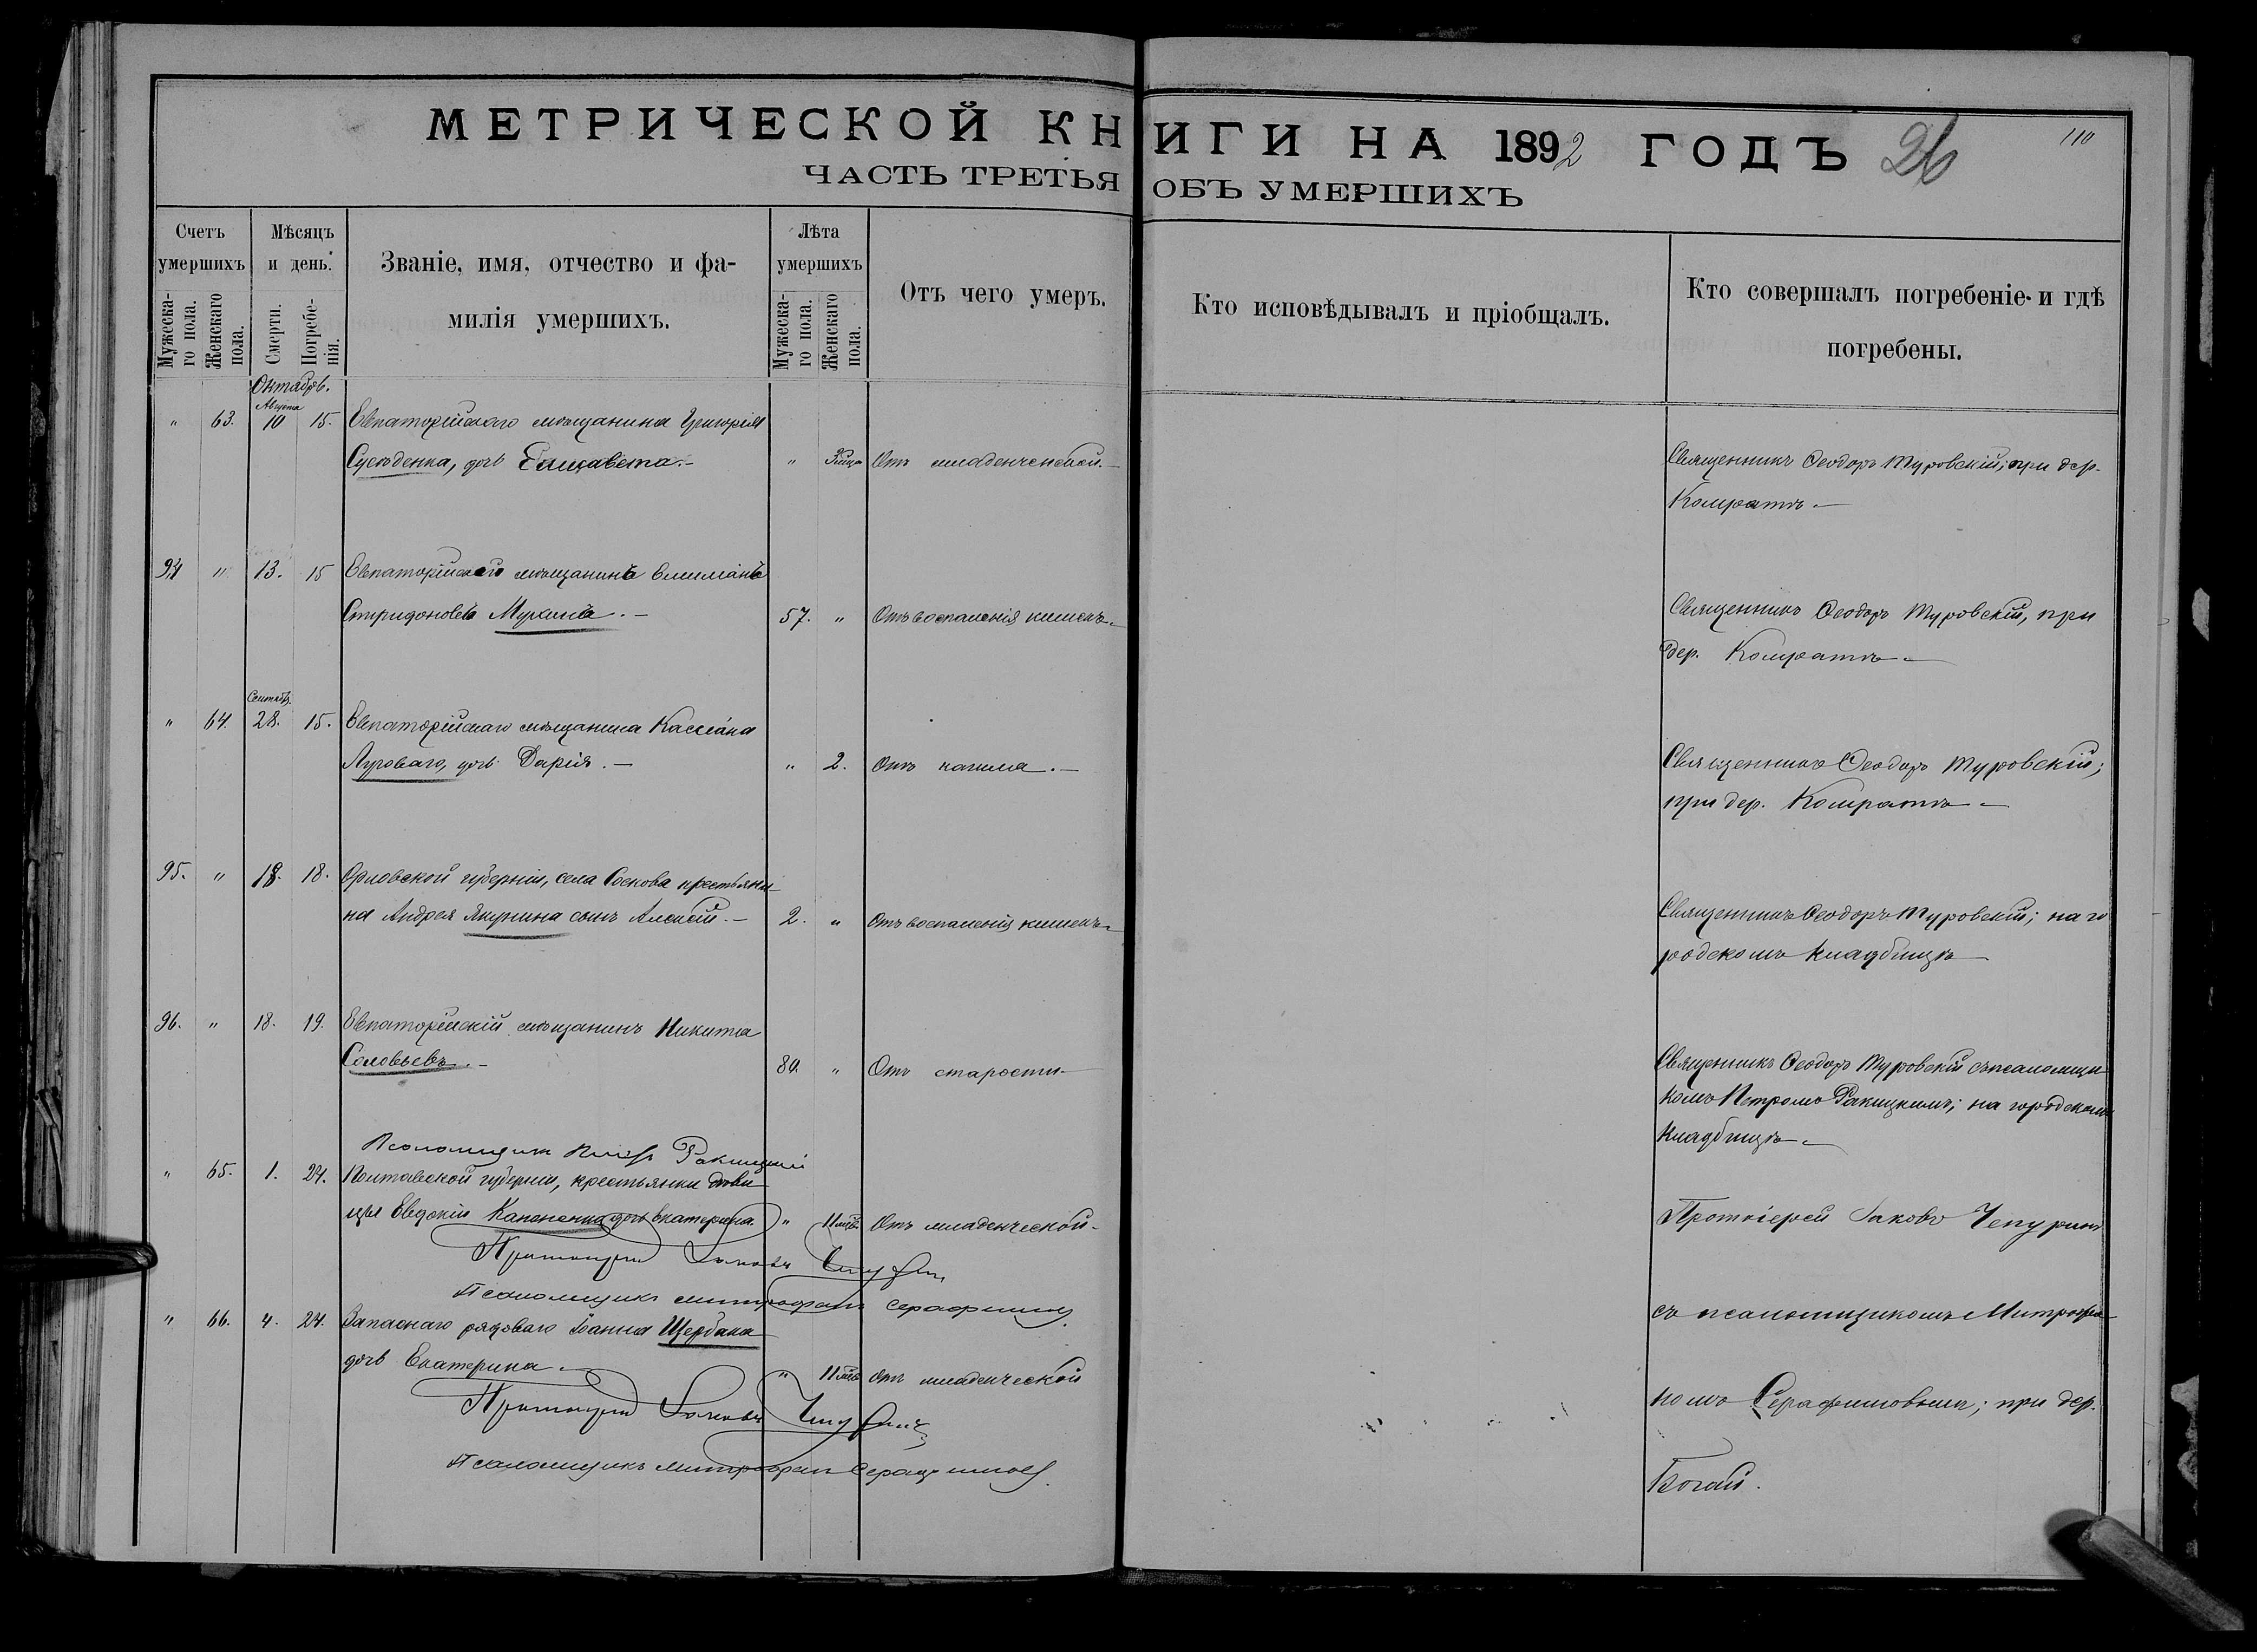 МЕТРИЧЕСКОЙ КНИГИ НА 1892 ГОДЪ 26 110
ЧАСТЬ ТРЕТЬЯ ОБЪ УМЕРШИХЪ
Счетъ умершихъ
Мужеска-го пола.
Женскаго пола.
Мѣсяцъ и день.
Смерти.
Погребе-нія.
Званіе, имя, отчество и фа-
милія умершихъ.
Лѣта умершихъ
Мужеска-го пола.
Женскаго пола.
Отъ чего умеръ.
Кто исповѣдывалъ и пріобщалъ.
Кто совершалъ погребеніе и гдѣ
погребены.
Октябрь.
Августа
" 63. 10 15. Евпаторійскаго мѣщанина Григорія
дочь Елисавета. " Отъ младенческой.
Священникъ Ѳеодоръ Туровскій; при дер.
Комратъ.
94 " 13. 15 мѣщанинъ
57. " Отъ воспаленія кишекъ.
Священникъ Ѳеодоръ Туровскій, при
дер. Комратъ
Сентяб.
" 64. 28. 15. Евпаторійскаго мѣщанина Кассіана
Луговаго, дочь Дарія. " 2. Отъ кашля.
Священникъ Ѳеодоръ Туровскій;
при дер. Комратъ
95. " 18. 18. Орловской губерніи, села Соскова крестьяни-
на Андрея Якунина сынъ Алексій. 2. " Отъ воспаленія кишекъ
Священникъ Ѳеодоръ Туровскій; на го
родскомъ кладбищѣ
96. " 18. 19. Евпаторійскій мѣщанинъ Никита
Соловьевъ. 80. " Отъ старости
Священникъ Ѳеодоръ Туровскій съ псаломщи-
комъ Петромъ Ракицкимъ; на городскомъ
кладбищѣ
Псаломщикъ Петръ Ракицкій
" 65. 1. 24. Полтавской губерніи, крестьянки дѣви
цы Евдокіи дочь Екатерина " 11 мѣс. Отъ младенческой
Протоіерей Іаковъ Чепуринъ
Протоіерей Іаковъ Чепуринъ
Псаломщикъ Митрофанъ Серафимовъ
" 66. 4. 24. Запаснаго рядоваго Іоанна Щербака
съ псаломщикомъ Митрофа-
дочь Екатерина. " 11 мѣс. отъ младенческой
Протоіерей Іаковъ Чепуринъ
номъ Серафимовымъ; при дер.
Псаломщикъ Митрофанъ Серафимовъ
Богай.